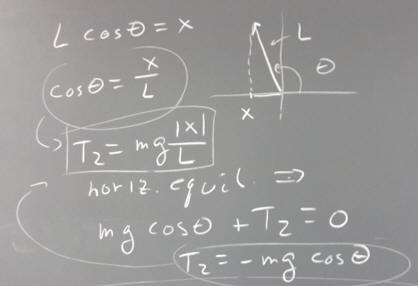 L cosθ = x
cosθ = x/L
T₂ = mg |x|/L
horiz. equil. ⇒
mg cosθ + T₂ = 0
T₂ = -mg cosθ
L
θ
x